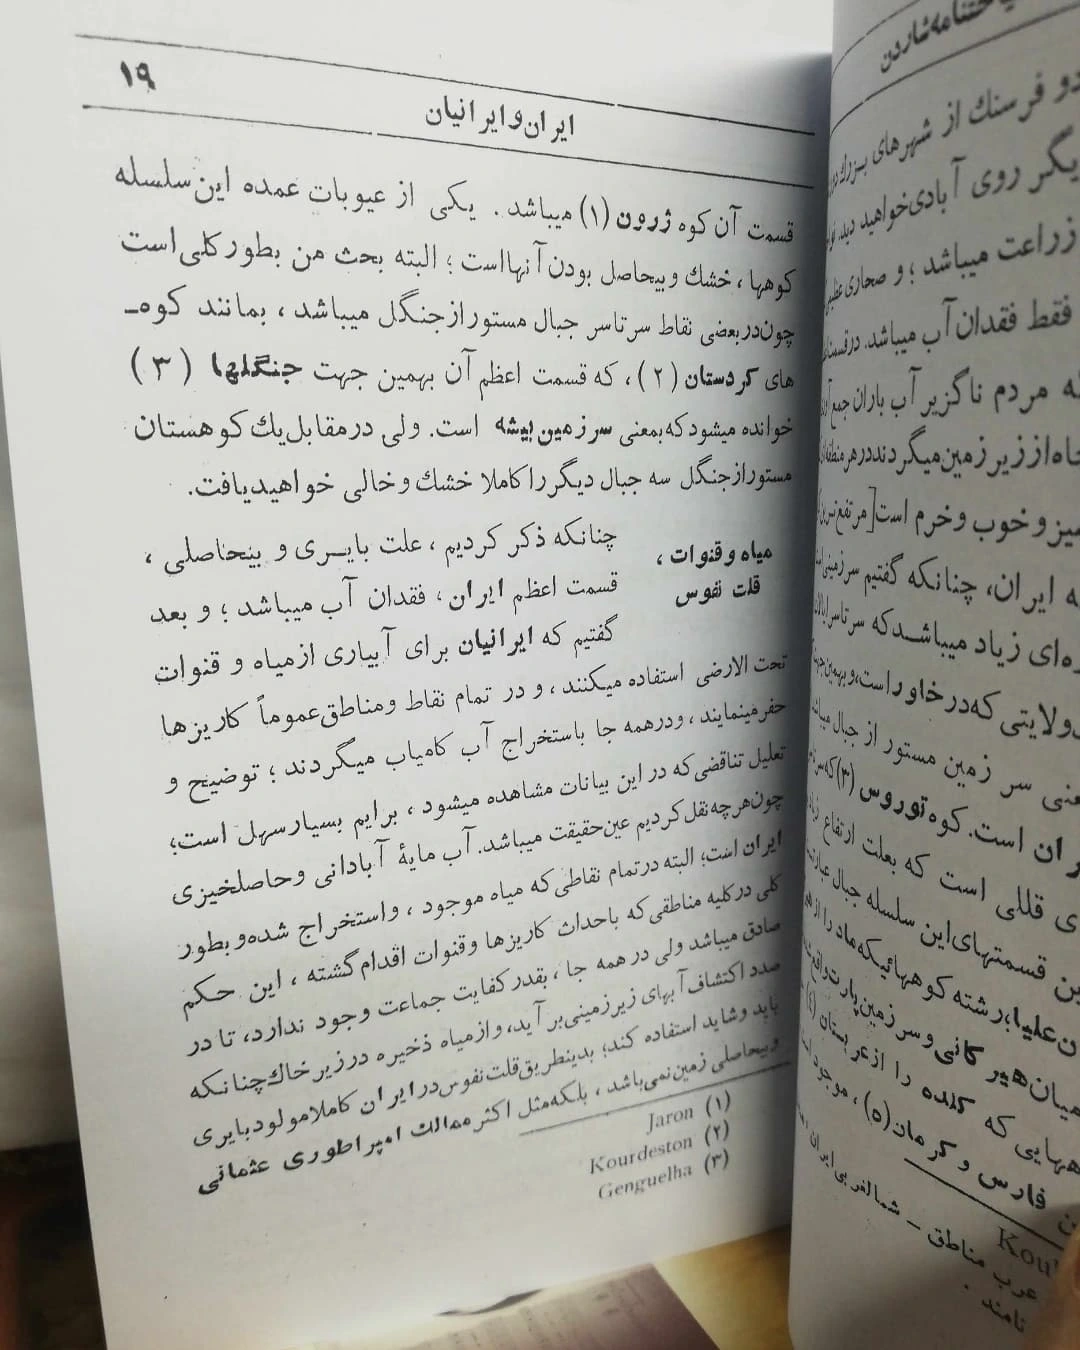 ۱۹
ایران و ایرانیان
قسمت آن کوه ژرون (۱) میباشد . یکی از عیوبات عمده این سلسله
کوهها ، خشك و بیحاصل بودن آنهااست ؛ البته بحث من بطور کلی است
چون دربعضی نقاط سرتاسر جبال مستور از جنگل میباشد ، بمانند کوه‌ـ
های کردستان (۲) ، که قسمت اعظم آن بهمین جهت جنگلها (۳)
خوانده میشود که بمعنی سرزمین بیشه است. ولی در مقابل یك کوهستان
مستور از جنگل سه جبال دیگر را کاملا خشك و خالی خواهید یافت.
میاه و قنوات ،
قلت نفوس
چنانکه ذکر کردیم ، علت بایـری و بیحاصلی ،
قسمت اعظم ایران ، فقدان آب میباشد ؛ و بعد
گفتیم که ایرانیان برای آبیاری از میاه و قنوات
تحت الارضی استفاده میکنند ، و در تمام نقاط و مناطق عموماً کاریزها
حفر مینمایند ، و درهمه جا باستخراج آب کامیاب میگردند ؛ توضیح و
تعلیل تناقضی که در این بیانات مشاهده میشود ، برایم بسیار سهل است؛
چون هرچه نقل کردیم عین حقیقت میباشد. آب مایهٔ آبادانی و حاصلخیزی
ایران است؛ البته در تمام نقاطی که میاه موجود ، و استخراج شده و بطور
کلی در کلیه مناطقی که باحداث کاریزها و قنوات اقدام گشته ، این حکم
صادق میباشد ولی در همه جا ، بقدر کفایت جماعت وجود ندارد، تا در
صدد اکتشاف آبهای زیرزمینی بر آید، و از میاه ذخیره در زیر خاك چنانکه
باید و شاید استفاده کند؛ بدینطریق قلت نفوس در ایران کاملا مولود بایری
و بیحاصلی زمین نمی‌باشد ، بلکه مثل اکثر ممالك امپراطوری عثمانی
(۱) Jaron
(۲) Kourdeston
(۳) Genguelha
دو فرسنك از شهرهای بـزرك
روی آبادی خواهید دید
زراعت میباشد ؛ و صحاری
فقط فقدان آب میباشد.
مردم ناگزیر آب باران جمع
از زیر زمین میگردند در هر
و خوب و خرم است [مرتفع‌تـرین
ایران، چنانکه گفتیم سرزمینی
زیاد میباشـد که سرتاسر
ولایتی که در خاور است، و بهمین
سر زمین مستور از جبال
است. کوه توروس (۳) که
قللی است که بعلت ارتفاع
قسمتهای این سلسله جبال
علیا؛ رشته کوههائیکه ماد را از
هیر کانی و سرزمین پارت واقع
که کلده را از عربستان (٤)
فارس و کرمان (٥) ، موجود
عرب مناطق – شمالغربی ایران
نامند .